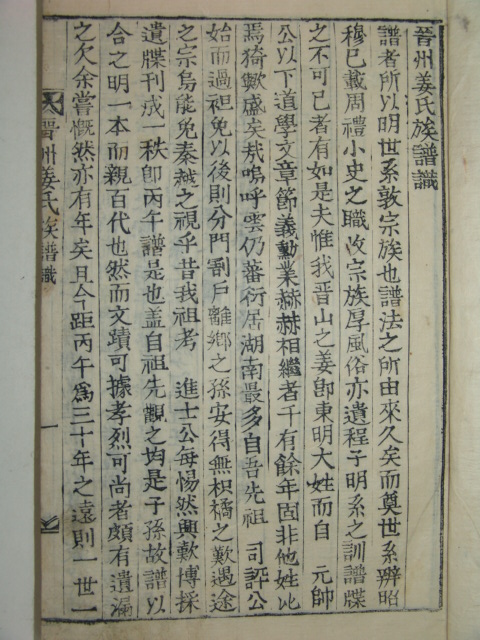 晉州姜氏族譜識
譜者所以明世系敦宗族也譜法之所由來久矣而奠世系辨昭
穆已載周禮小史之職收宗族厚風俗亦遺程子明系之訓譜牒
之不可已者有如是夫惟我晋山之姜卽東明大姓而自 元帥
公以下道學文章節義勳業赫赫相繼者千有餘年固非他姓比
焉猗歟盛矣哉嗚呼雲仍蕃衍居湖南最多自吾先祖 司評公
始而過袒免以後則分門割戶離鄉之孫安得無枳橘之歎遇途
之宗烏能免秦越之視乎昔我祖考 進士公每惕然興歎博採
遺牒刊成一秩卽丙午譜是也盖自祖先觀之均是子孫故譜以
合之明一本而親百代也然而文蹟可據孝烈可尚者頗有遺漏
之欠余嘗慨然亦有年矣且今距丙午爲三十年之遠則一世一
晋州姜氏族譜 識
一